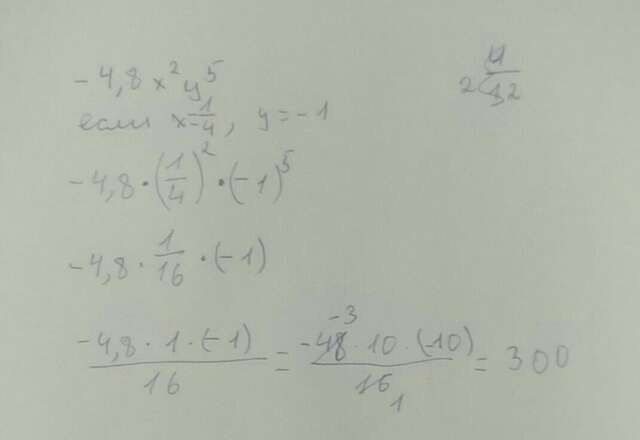 -4,8 x² y⁵
если x=1/4, y=-1
-4,8·(1/4)²·(-1)⁵
-4,8·1/16·(-1)
-4,8·1·(-1)/16 = -48·10·(-10)/16 = 300
-3
1
4
2
32